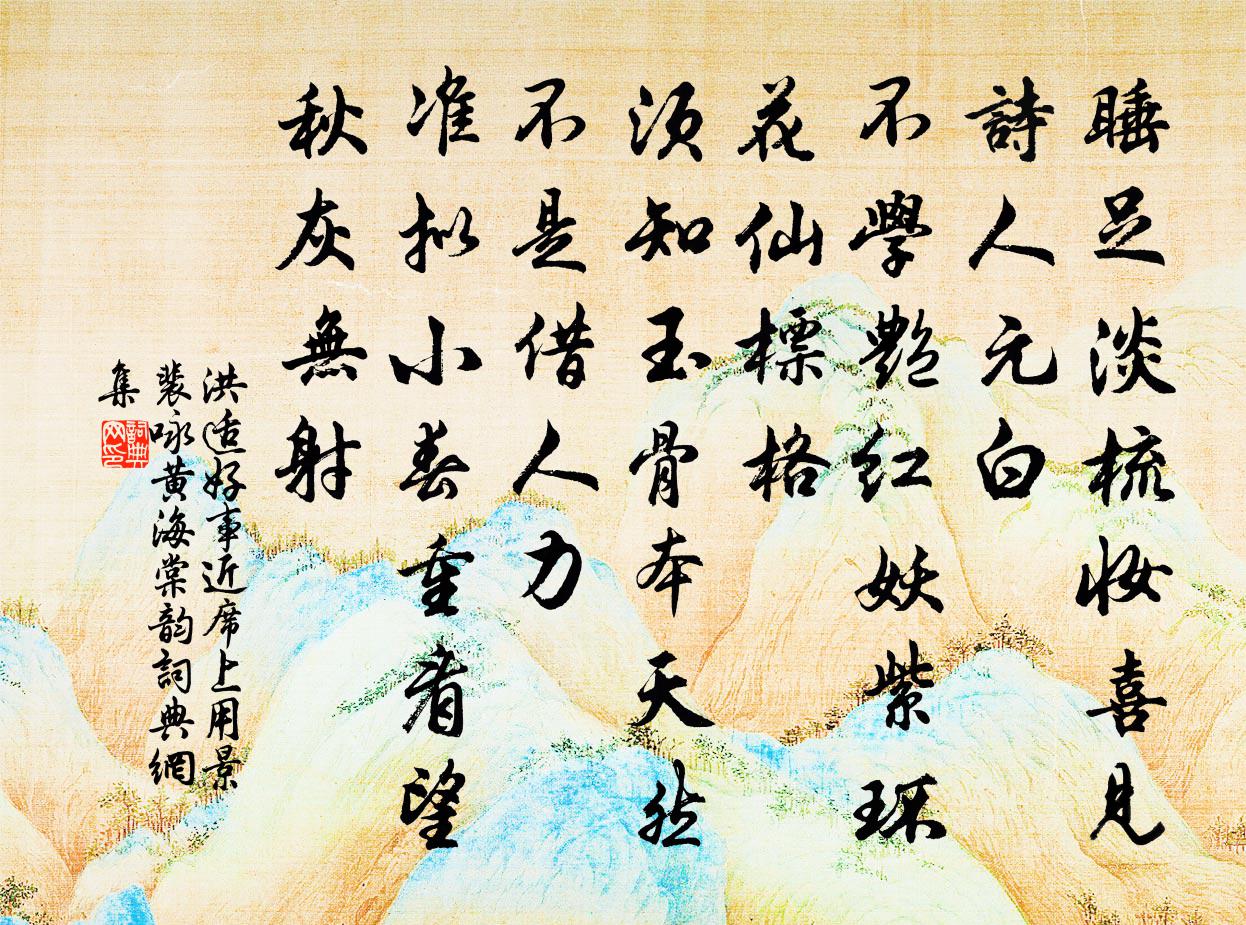 睡足淡梳妆喜見
詩人元白
不學艷紅妖紫环
花仙標格
須知玉骨本天然
不是借人力
准拟小春重看望
秋灰無射
洪适好事近席上用景
裴咏黄海棠韵詞典網
集
詞典
网印